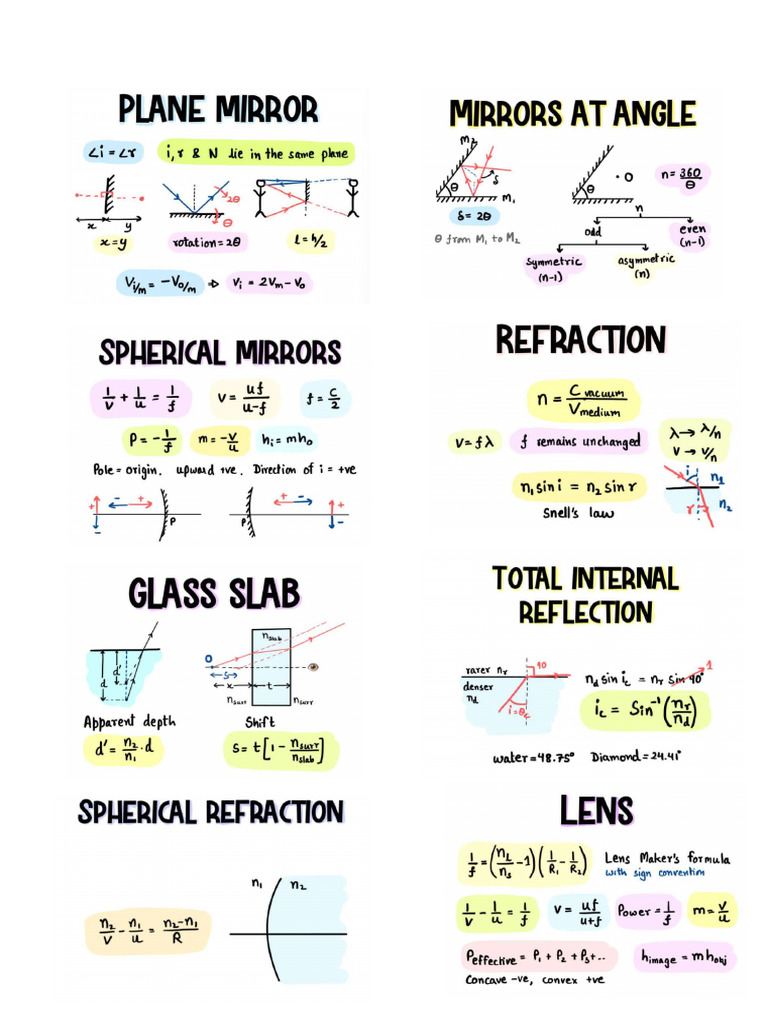 PLANE MIRROR
∠i = ∠r
i, r & N lie in the same plane
x
y
2θ
θ
x = y
rotation = 2θ
l = h/2
V_{i/m} = -V_{o/m} ⇒ V_i = 2V_m - V_o
MIRRORS AT ANGLE
M₂
θ
δ
M₁
δ = 2θ
θ from M₁ to M₂
θ
O
n = 360/θ
n
odd
even
(n-1)
symmetric
(n-1)
asymmetric
(n)
SPHERICAL MIRRORS
1/v + 1/u = 1/f
v = uf/u-f
f = C/2
P = -1/f
m = -v/u
h_i = mh_o
Pole = origin. upward +ve. Direction of i = +ve
+ - - + P
P + - + -
REFRACTION
n = C_vacuum/V_medium
v = fλ
f remains unchanged
λ → λ/n
v → v/n
n₁ sin i = n₂ sin r
Snell's law
i
n₁
r
n₂
GLASS SLAB
d
d'
n_slab
O
s
x
t
n_surr
n_surr
Apparent depth
d' = n₂/n₁ · d
Shift
s = t[1 - n_surr/n_slab]
TOTAL INTERNAL
REFLECTION
rarer n_r
denser
n_d
90
i = θ_c
n_d sin i_c = n_r sin 90° 1
i_c = Sin⁻¹(n_r/n_d)
water = 48.75° Diamond = 24.41°
SPHERICAL REFRACTION
n₂/v - n₁/u = n₂-n₁/R
n₁
n₂
LENS
1/f = (n_L/n_s - 1)(1/R₁ - 1/R₂)
Lens Maker's formula
with sign convention
1/v - 1/u = 1/f
v = uf/u+f
Power = 1/f
m = v/u
P_effective = P₁ + P₂ + P₃ + ..
h_image = mh_obj
Concave -ve, convex +ve